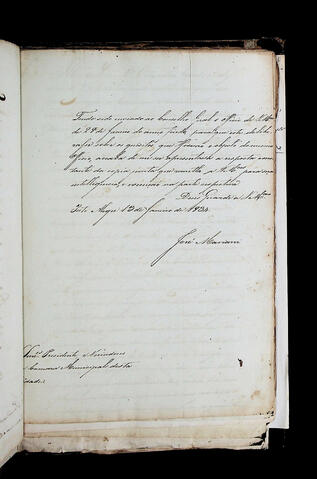 Tendo sido enviado ao Conselho Geral o officio de V. Mces
de 29 de Junho do anno findo para que este delibe-
rasse sobre a questão, que formava o objecto do mesmo
Officio, acaba de me ser apresentada a resposta cons-
tante da copia junta que remetto a V. Mces para sua
intelligencia, e execução na parte respectiva.
Deos Guarde a V. Mces
Porto Alegre 13 de Janeiro de 1834.
José Mariani
Snres Presidente e Vereadores
Camara Municipal desta
Cidade.